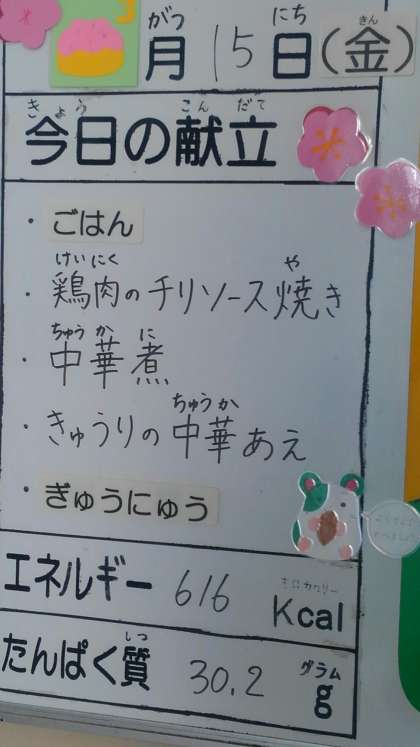 がつ にち きん
月 15 日 (金)
きょう こん だて
今日の献立
・ごはん
けいにく や
・鶏肉のチリソース焼き
ちゅう か に
・中華煮
ちゅう か
・きゅうりの中華あえ
・ぎゅうにゅう
エネルギー 616 Kcal
しつ グラム
たんぱく質 30.2 g